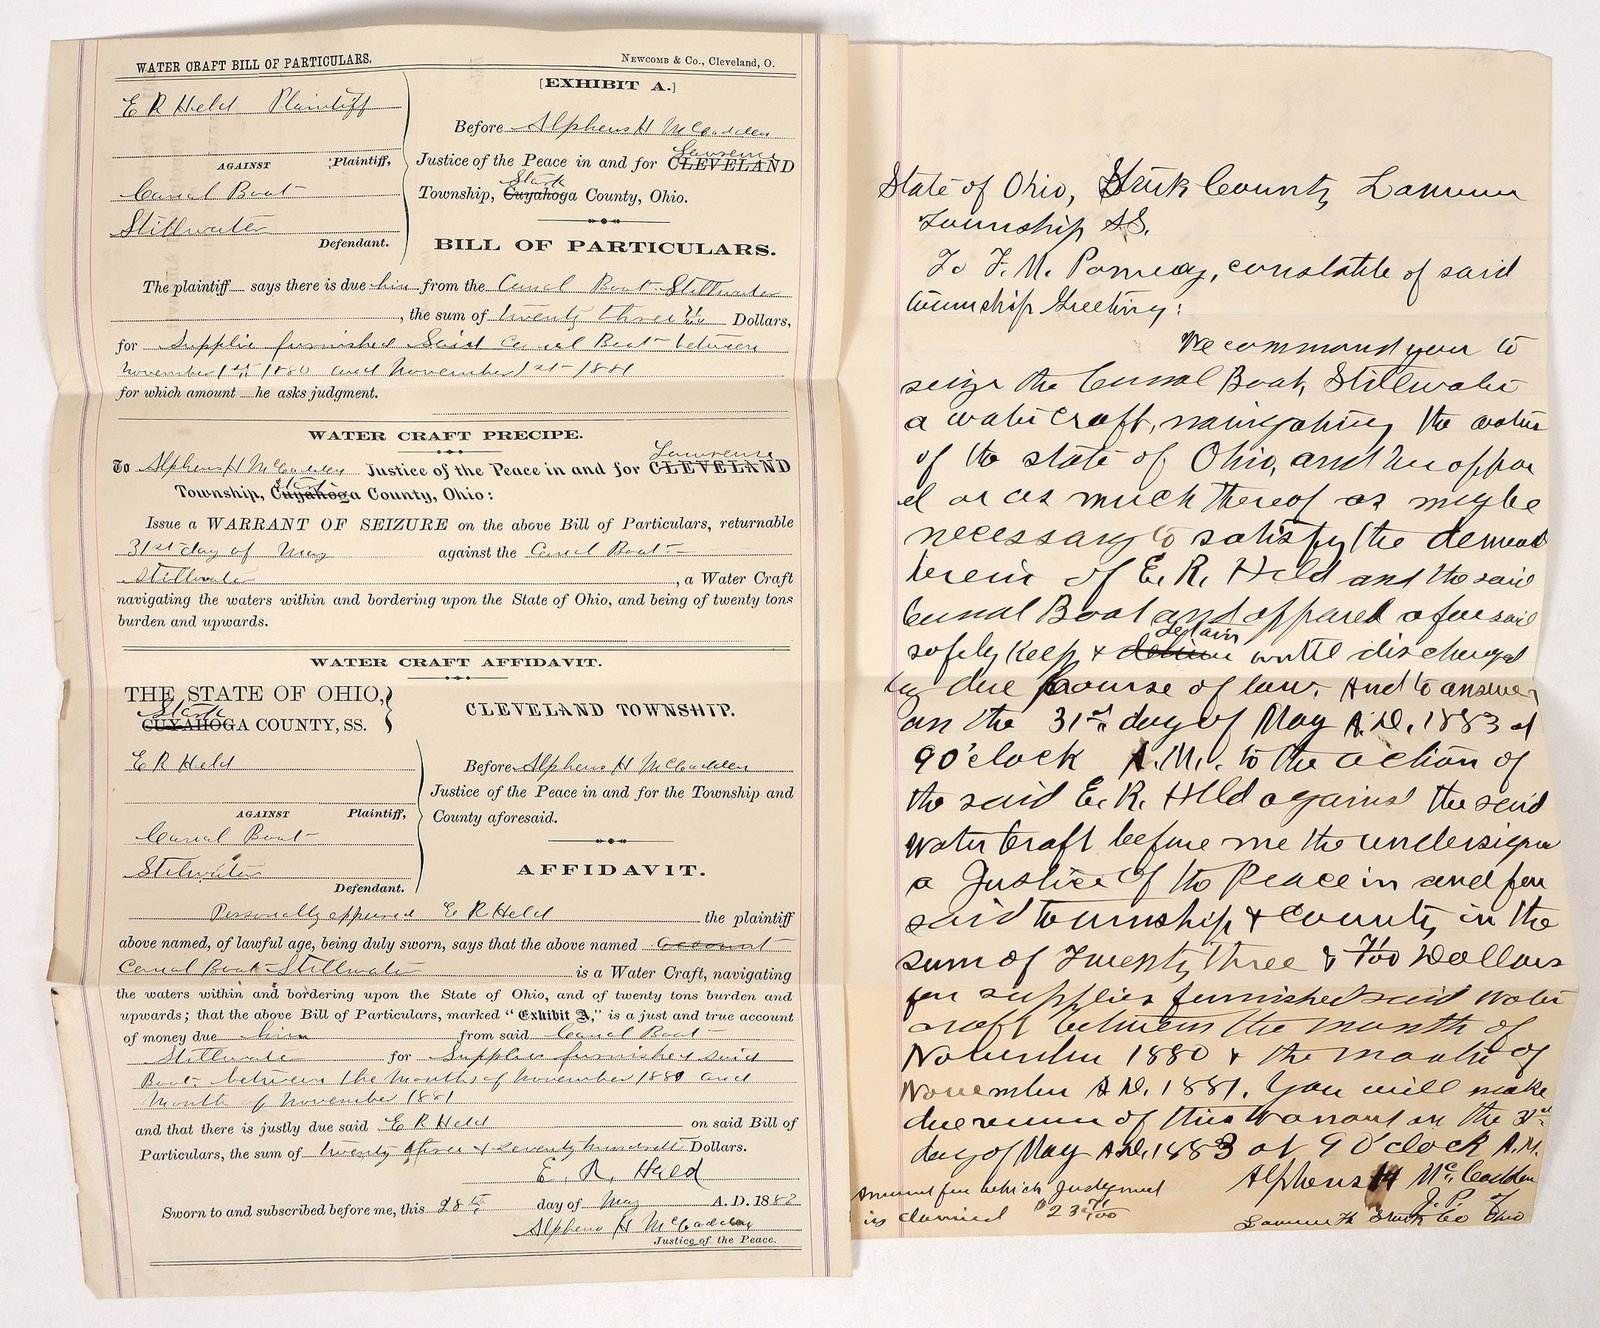 WATER CRAFT BILL OF PARTICULARS.
NEWCOMB & CO., Cleveland, O.
E R Held Plaintiff
AGAINST Plaintiff,
Canal Boat
Stillwater
Defendant.
[EXHIBIT A.]
Before Alpheus H McCadden
Lawrence
Justice of the Peace in and for CLEVELAND
Stark
Township, Cuyahoga County, Ohio.
BILL OF PARTICULARS.
The plaintiff says there is due him from the Canal Boat Stillwater
, the sum of twenty three 71/100 Dollars,
for Supplies furnished Said Canal Boat between
November 1st 1880 and November 1st 1881
for which amount he asks judgment.
WATER CRAFT PRECIPE.
Lawrence
To Alpheus H McCadden Justice of the Peace in and for CLEVELAND
Stark
Township, Cuyahoga County, Ohio:
Issue a WARRANT OF SEIZURE on the above Bill of Particulars, returnable
31st day of May against the Canal Boat
Stillwater, a Water Craft
navigating the waters within and bordering upon the State of Ohio, and being of twenty tons
burden and upwards.
WATER CRAFT AFFIDAVIT.
THE STATE OF OHIO,
Stark
CUYAHOGA COUNTY, SS.
CLEVELAND TOWNSHIP.
E R Held
AGAINST Plaintiff,
Canal Boat
Stilwater
Defendant.
Before Alpheus H McCadden
Justice of the Peace in and for the Township and
County aforesaid.
AFFIDAVIT.
Personally appeared E R Held the plaintiff
above named, of lawful age, being duly sworn, says that the above named account
Canal Boat Stillwater is a Water Craft, navigating
the waters within and bordering upon the State of Ohio, and of twenty tons burden and
upwards; that the above Bill of Particulars, marked "Exhibit A," is a just and true account
of money due him from said Canal Boat
Stillwater for Supplies furnished said
Boat between the months of November 1880 and
Month of November 1881
and that there is justly due said E R Held on said Bill of
Particulars, the sum of twenty three & seventy hundredth Dollars.
E. R. Held
Sworn to and subscribed before me, this 28th day of May A. D. 1882
Alpheus H McCadden
Justice of the Peace.
State of Ohio, Stark County Lawrence
Township SS.
To F. M. Pomeroy, constable of said
township Greeting:
We command you to
seize the Canal Boat, Stillwater
a water craft, navigating the waters
of the state of Ohio, and her appar
el or as much thereof as may be
necessary to satisfy the demand
herein of E. R. Held and the said
Canal Boat and apparel aforesaid
detain
safely keep & until discharged
by due course of law. And to answer
on the 31st day of May A.D. 1883 at
9 O'clock A.M. to the action of
the said E. R. Held against the said
Water Craft before me the undersigned
a Justice of the Peace in and for
said township & county in the
sum of Twenty three & 71/100 Dollars
for supplies furnished said water
craft between the month of
November 1880 & the month of
November A.D. 1881. You will make
due return of this Warrant on the 31st
day of May A.D. 1883 at 9 O'clock A.M.
Alpheus H McCadden
J. P. of
Lawrence Tp Stark Co Ohio
Amount for which Judgment
is claimed $23 71/100